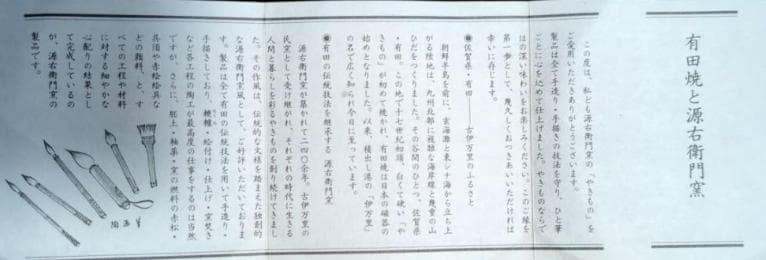 有田焼と源右衛門窯
この度は、私ども源右衛門窯の「やきもの」を
ご愛用いただきありがとうございます。
製品は全て手造り・手描きの技法を守り、ひと筆
ごとに心を込めて仕上げました。やきものならで
はの深い味わいをお楽しみください。このご縁を
第一歩として、幾久しくおつきあいいただければ
幸いに存じます。
◉佐賀県・有田――古伊万里のふるさと
朝鮮半島を前に、玄海灘と東シナ海から立ち上
がる陸地は、九州北部に複雑な海岸線と幾重の山
ひだをつくりました。その谷間のひとつ、佐賀県
・有田。この地で十七世紀初頭、白くて硬い「や
きもの」が初めて焼かれ、有田焼は日本の磁器の
始めとなりました。以来、積出し港の「伊万里」
の名で広く知られ今日に至っています。
◉有田の伝統技法を継承する 源右衛門窯
源右衛門窯が築かれて二四〇余年。古伊万里の
民窯として受け継がれ、それぞれの時代に生きる
人間と暮らしを彩るやきものを創り続けてきまし
た。その作風は、伝統的な文様を踏まえた独創的
な源右衛門窯風として、ご好評いただいておりま
す。製品は全て有田の伝統技法を用いて手造り・
手描きしており、轆轤・絵付け・仕上げ・窯焚き
など各工程の陶工が最高度の仕事をするのは当然
ですが、さらに、胚土・釉薬・窯の燃料の赤松・
呉須や赤絵絵具な
どの顔料、と、す
べての工程や材料
に対する細やかな
心配りの結果とし
て完成しているの
が、源右衛門窯の
製品です。
陶画筆